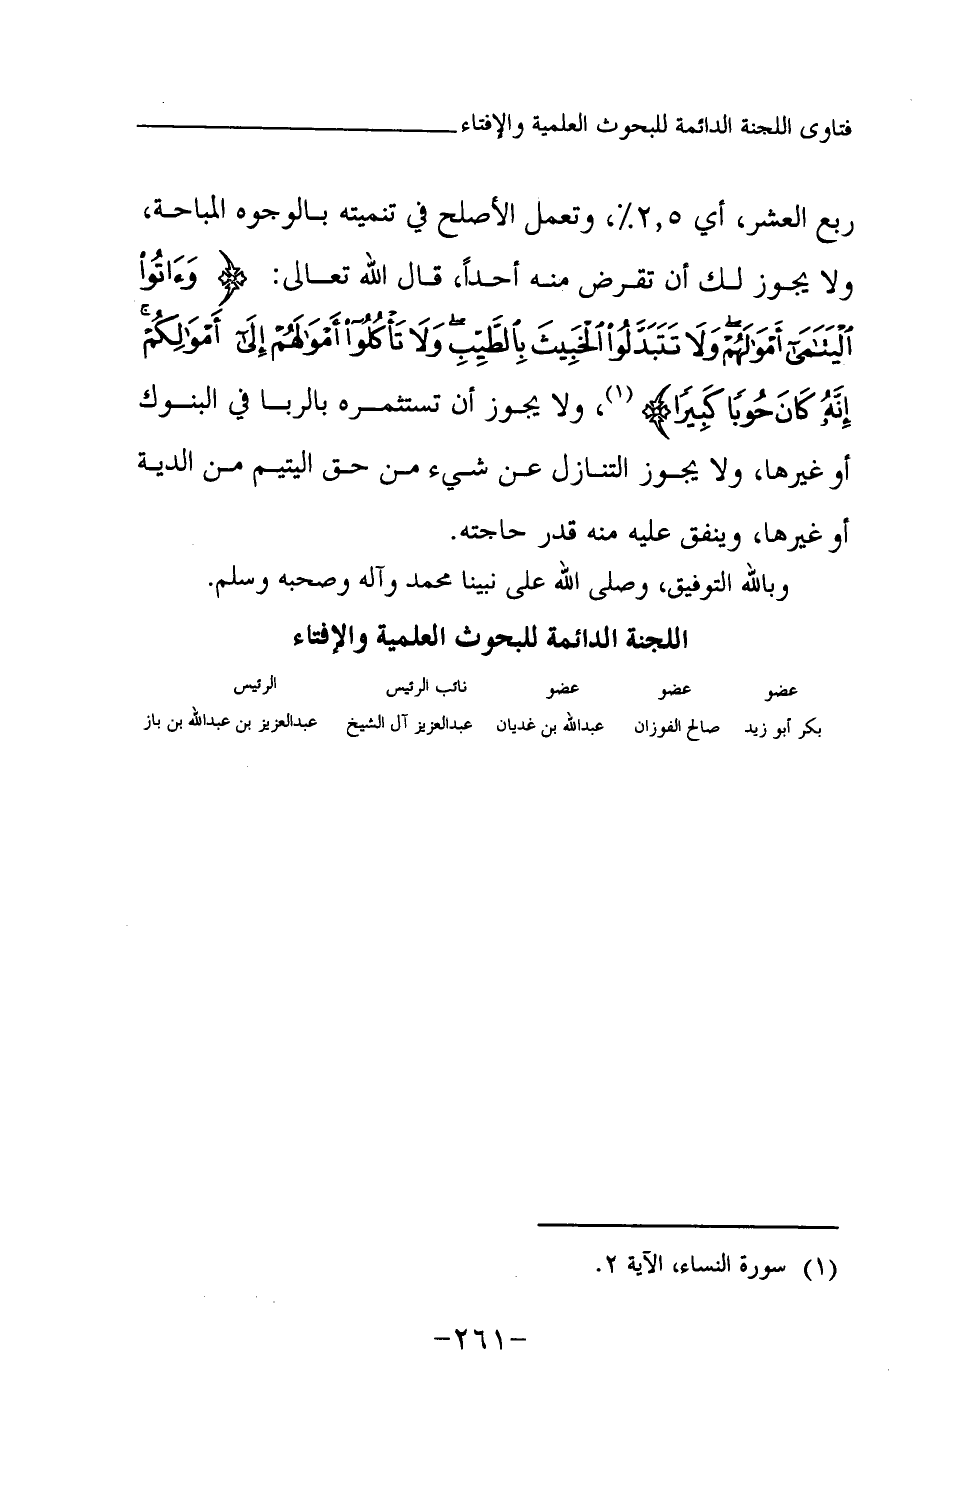 فتاوى اللجنة الدائمة للبحوث العلمية والإفتاء
ربع العشر، أي ٢,٥٪، وتعمل الأصلح في تنميته بالوجوه المباحة،
ولا يجوز لك أن تقرض منه أحداً، قال الله تعالى: ﴿ وَءَاتُوا۟
ٱلْيَتَـٰمَىٰٓ أَمْوَٰلَهُمْ ۖ وَلَا تَتَبَدَّلُوا۟ ٱلْخَبِيثَ بِٱلطَّيِّبِ ۖ وَلَا تَأْكُلُوٓا۟ أَمْوَٰلَهُمْ إِلَىٰٓ أَمْوَٰلِكُمْ ۚ
إِنَّهُۥ كَانَ حُوبًا كَبِيرًا﴾ (١)، ولا يجوز أن تستثمره بالربا في البنوك
أو غيرها، ولا يجوز التنازل عن شيء من حق اليتيم من الدية
أو غيرها، وينفق عليه منه قدر حاجته.
وبالله التوفيق، وصلى الله على نبينا محمد وآله وصحبه وسلم.
اللجنة الدائمة للبحوث العلمية والإفتاء
عضو عضو عضو نائب الرئيس الرئيس
بكر أبو زيد صالح الفوزان عبدالله بن غديان عبدالعزيز آل الشيخ عبدالعزيز بن عبدالله بن باز
(١) سورة النساء، الآية ٢.
-٢٦١-